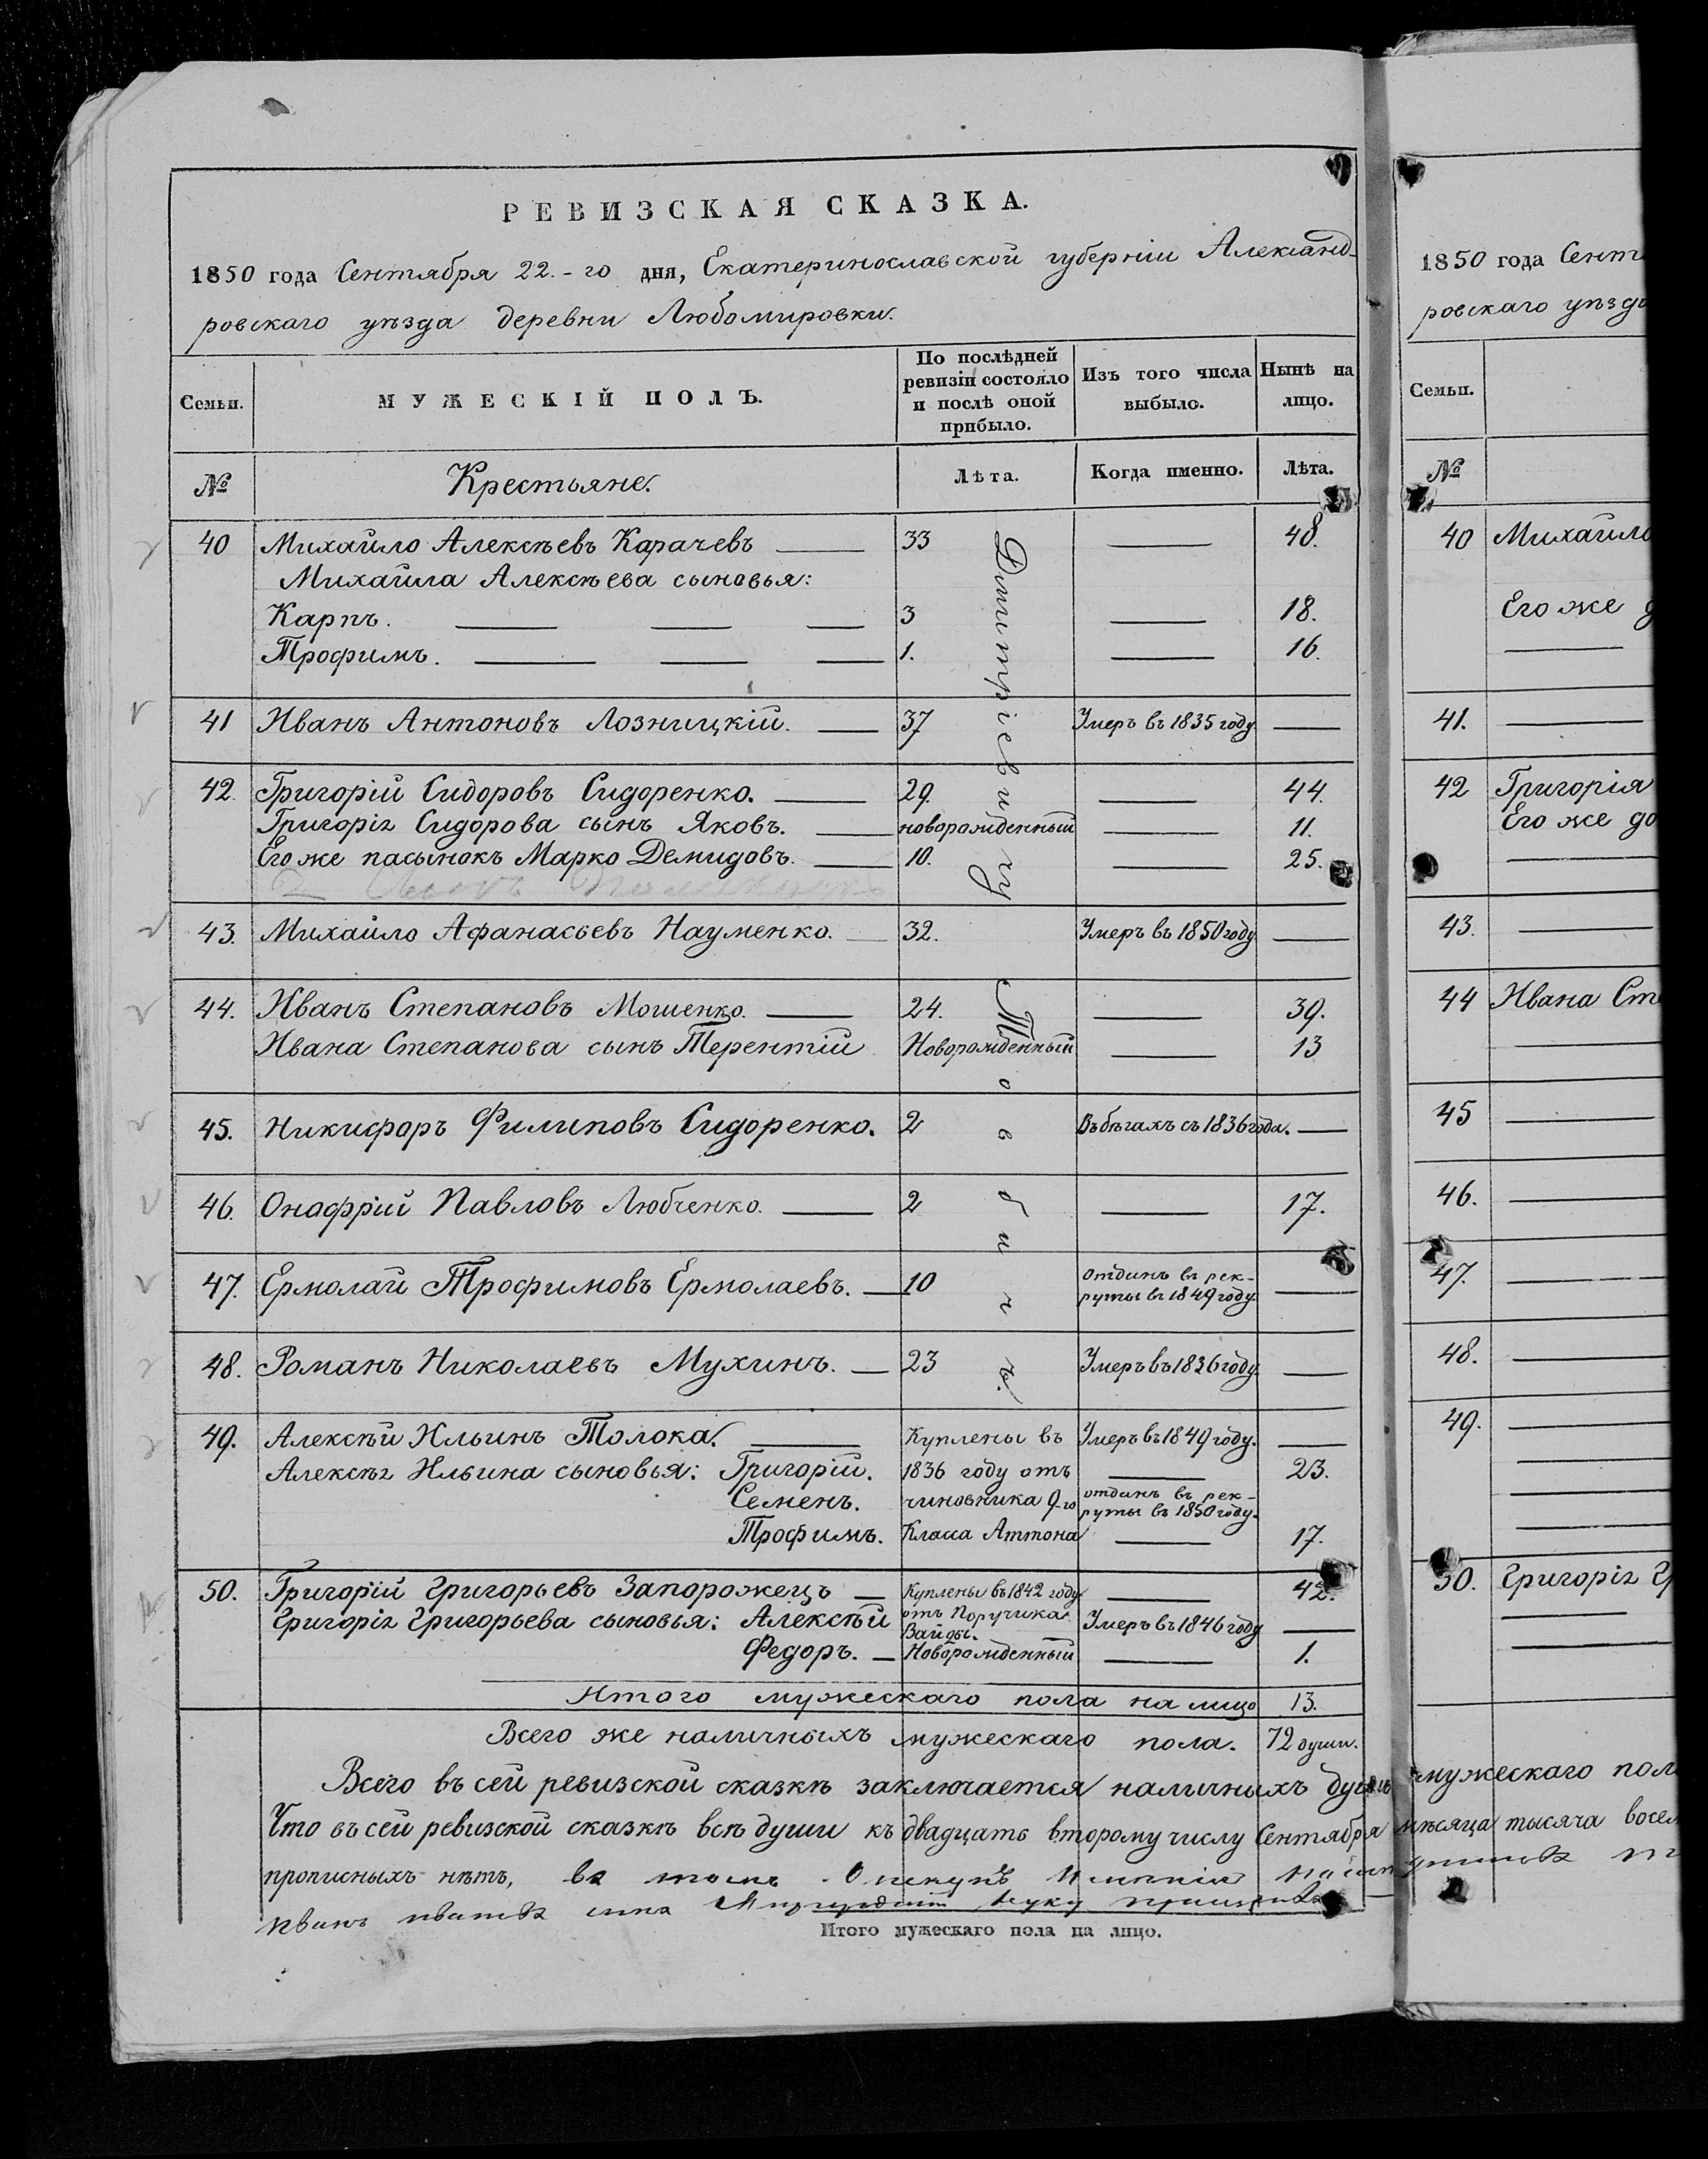 РЕВИЗСКАЯ СКАЗКА.
1850 года Сентября 22.-го дня, Екатеринославской губерніи Александ-
ровскаго уѣзда деревни Любомировки.
Семьи.
МУЖЕСКІЙ ПОЛЪ.
По послѣдней
ревизіи состояло
и послѣ оной
прибыло.
Изъ того числа
выбыло.
Нынѣ на
лицо.
№ Крестьяне. Лѣта. Когда именно. Лѣта.
40 Михайло Алексѣевъ Карачевъ — 33 — 48.
Михайла Алексѣева сыновья:
Карпъ. — — — 3 — 18.
Трофимъ. — — — 1. — 16.
41 Иванъ Антоновъ Лозницкій. — 37 Умеръ въ 1835 году. —
42. Григорій Сидоровъ Сидоренко. — 29. — 44.
Григорія Сидорова сынъ Яковъ. — новорожденный — 11.
Его же пасынокъ Марко Демидовъ. — 10. — 25.
43. Михайло Афанасьевъ Науменко. — 32. Умеръ въ 1850 году. —
44. Иванъ Степановъ Мошенко. — 24. — 39.
Ивана Степанова сынъ Терентій Новорожденный — 13
45. Никифоръ Филиповъ Сидоренко. 2 Въ бѣгахъ съ 1836 года. —
46. Онофрій Павловъ Любченко. — 2 — 17.
47. Ермолай Трофимовъ Ермолаевъ. — 10 отданъ въ рек-
руты въ 1849 году. —
48. Романъ Николаевъ Мухинъ. — 23 Умеръ въ 1836 году. —
49. Алексѣй Ильинъ Толока. — Куплены въ Умеръ въ 1849 году. —
Алексѣя Ильина сыновья: Григорій. 1836 году отъ — 23.
Семенъ. чиновника 9-го отданъ въ рек-
руты въ 1850 году.
Трофимъ. Класа Антона — 17.
Дмитріевичу
Товбичъ.
50. Григорій Григорьевъ Запорожецъ — Куплены въ 1842 году — 42.
Григорія Григорьева сыновья: Алексѣй отъ Поручика Умеръ въ 1846 году —
Вайды.
Федоръ. — Новорожденный — 1.
Итого мужескаго пола на лицо 13.
Всего же наличныхъ мужескаго пола. 72 души.
Всего въ сей ревизской сказкѣ заключается наличныхъ душъ
Что въ сей ревизской сказкѣ всѣ души къ двадцать второму числу Сентября
прописныхъ нѣтъ, въ томъ Опекунъ Имѣнія
руку
Итого мужескаго пола на лицо.
1850 года Сент
ровскаго уѣзда
Семьи.
№
40 Михайло
Его же д
—
41. —
42 Григорія
Его же до
—
43. —
44 Ивана Сте
—
45 —
46. —
47. —
48. —
49. —
—
—
—
50. Григорія Гр
—
—
мужескаго пол
мѣсяца тысяча восем